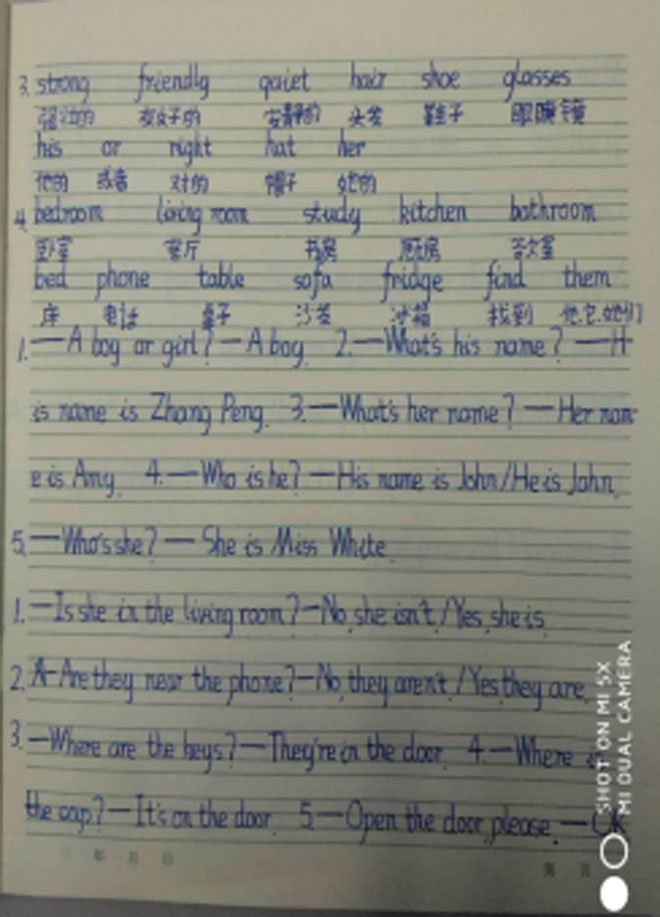 3. strong friendly quiet hair shoe glasses
强壮的 友好的 安静的 头发 鞋子 眼睛镜
his or right hat her
他的 或者 对的 帽子 她的
4. bedroom living room study kitchen bathroom
卧室 客厅 书房 厨房 浴室
bed phone table sofa fridge find them
床 电话 桌子 沙发 冰箱 找到 他.它.她们
1. —A boy or girl? —A boy. 2. —What's his name? —H
is name is Zhang Peng. 3. —What's her name? —Her nam
e is Amy. 4. —Who is he? —His name is John/He is John.
5. —Who's she? —She is Miss White.
1. —Is she in the living room? —No, she isn't./Yes, she is.
2. A—Are they near the phone? —No, they aren't./Yes, they are.
3. —Where are the keys? —They're in the door. 4. —Where is
the cap? —It's on the door. 5. —Open the door, please. —OK
年 月 日 第 页
SHOT ON MI 5X
MI DUAL CAMERA